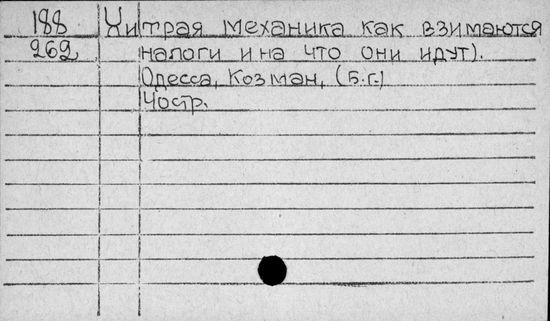 188 Хитрая механика как взимаются
262 налоги и на что они идут).
Одесса, Козман, (б.г.)
40стр.